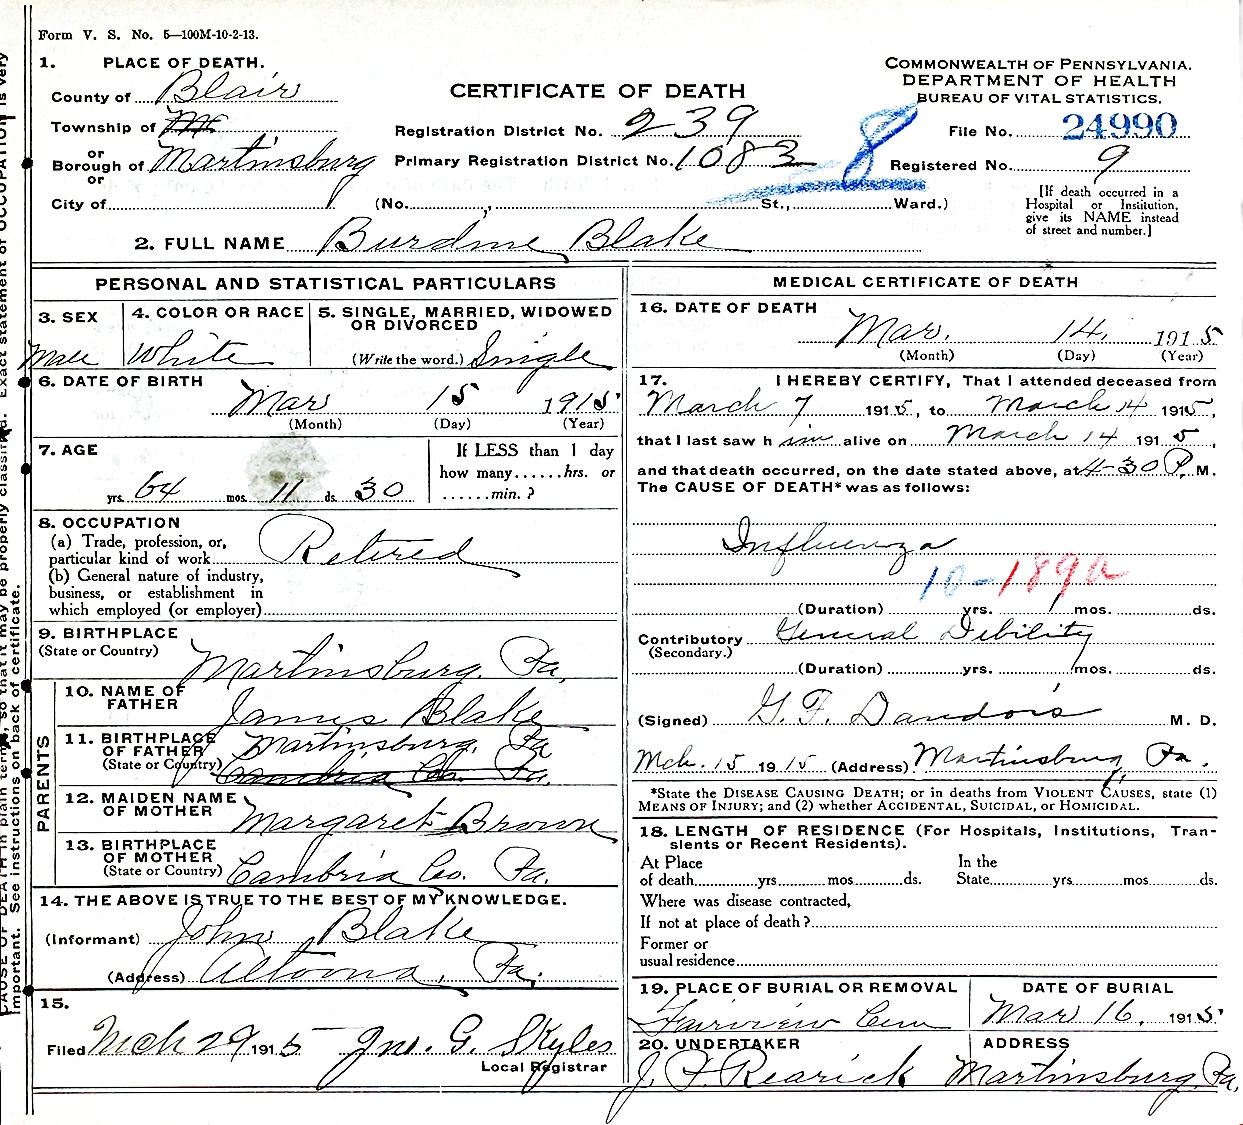 Form V. S. No. 5—100M-10-2-13.
1. PLACE OF DEATH.
County of Blair
Township of
or
Borough of Martinsburg
or
City of
CERTIFICATE OF DEATH
Registration District No. 239
Primary Registration District No. 1083
(No. , St., Ward.)
8
COMMONWEALTH OF PENNSYLVANIA.
DEPARTMENT OF HEALTH
BUREAU OF VITAL STATISTICS.
File No. 24990
Registered No. 9
[If death occurred in a
Hospital or Institution,
give its NAME instead
of street and number.]
2. FULL NAME Burdine Blake
PERSONAL AND STATISTICAL PARTICULARS
3. SEX
Male
4. COLOR OR RACE
White
5. SINGLE, MARRIED, WIDOWED
OR DIVORCED
(Write the word.) Single
6. DATE OF BIRTH
Mar 15 1915
(Month) (Day) (Year)
7. AGE
64 yrs. 11 mos. 30 ds.
If LESS than 1 day
how many......hrs. or
......min. ?
8. OCCUPATION
(a) Trade, profession, or,
particular kind of work Retired
(b) General nature of industry,
business, or establishment in
which employed (or employer)
9. BIRTHPLACE
(State or Country)
Martinsburg, Pa.
PARENTS
10. NAME OF
FATHER
James Blake
11. BIRTHPLACE
OF FATHER
(State or Country)
Martinsburg, Pa
Cambria Co. Pa.
12. MAIDEN NAME
OF MOTHER
Margaret Brown
13. BIRTHPLACE
OF MOTHER
(State or Country) Cambria Co. Pa.
14. THE ABOVE IS TRUE TO THE BEST OF MY KNOWLEDGE.
(Informant) John Blake
(Address) Altoona, Pa.
15.
Filed Mch 29 1915 Jno. G. Skyles
Local Registrar
MEDICAL CERTIFICATE OF DEATH
16. DATE OF DEATH
Mar. 14, 1915
(Month) (Day) (Year)
17. I HEREBY CERTIFY, That I attended deceased from
March 7 1915, to March 14 1915,
that I last saw him alive on March 14 1915,
and that death occurred, on the date stated above, at 4-30 P. M.
The CAUSE OF DEATH* was as follows:
Influenza
10-189a
(Duration) yrs. 1 mos. ds.
Contributory General Debility
(Secondary.)
(Duration) yrs. mos. ds.
(Signed) G. F. M. D.
Mch. 15 1915 (Address) Martinsburg, Pa.
*State the DISEASE CAUSING DEATH; or in deaths from VIOLENT CAUSES, state (1)
MEANS OF INJURY; and (2) whether ACCIDENTAL, SUICIDAL, or HOMICIDAL.
18. LENGTH OF RESIDENCE (For Hospitals, Institutions, Tran-
sients or Recent Residents).
At Place In the
of death yrs mos ds. State yrs mos ds.
Where was disease contracted,
If not at place of death?
Former or
usual residence
19. PLACE OF BURIAL OR REMOVAL
Fairview Cem
DATE OF BURIAL
Mar 16, 1915
20. UNDERTAKER
J. F. Rearick
ADDRESS
Martinsburg, Pa.
Exact statement of OCCUPATION is very
CAUSE OF DEATH in plain terms, so that it may be properly classified.
important. See instructions on back of certificate.